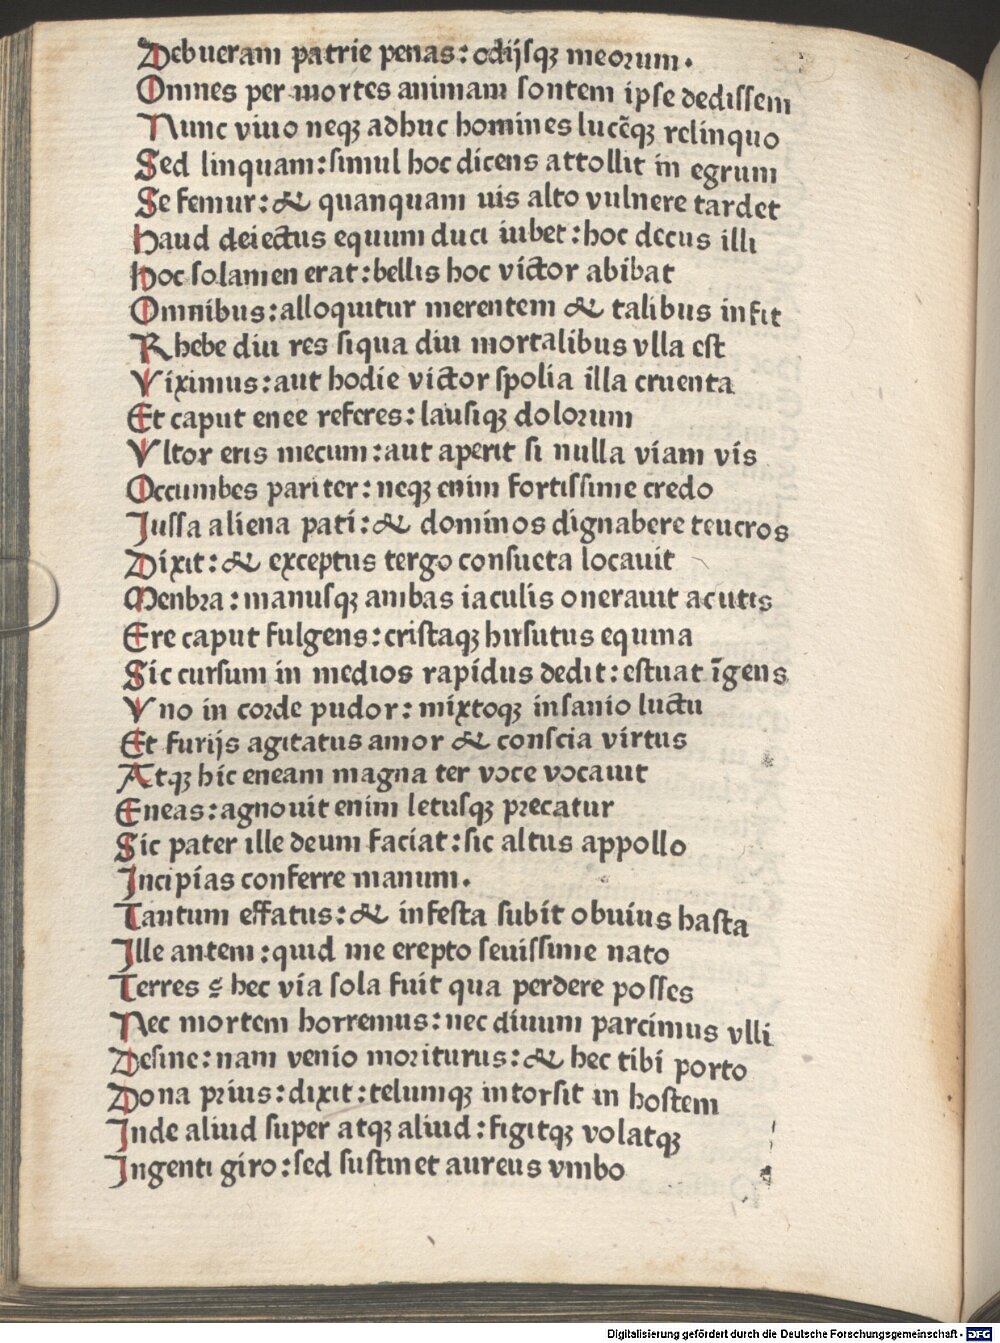 Debueram patrie penas: odijsqꝫ meorum.
Omnes per mortes animam sontem ipse dedissem
Nunc viuo neqꝫ adhuc homines lucēqꝫ relinquo
Sed linquam: simul hoc dicens attollit in egrum
Se femur: & quanquam uis alto vulnere tardet
Haud deiectus equum duci iubet: hoc decus illi
Hoc solamen erat: bellis hoc victor abibat
Omnibus: alloquitur merentem & talibus infit
Rhebe diu res siqua diu mortalibus vlla est
Viximus: aut hodie victor spolia illa cruenta
Et caput enee referes: lausiqꝫ dolorum
Vltor eris mecum: aut aperit si nulla viam vis
Occumbes pariter: neqꝫ enim fortissime credo
Jussa aliena pati: & dominos dignabere teucros
Dixit: & exceptus tergo consueta locauit
Menbra: manusqꝫ ambas iaculis onerauit acutis
Ere caput fulgens: cristaqꝫ hirsutus equina
Sic cursum in medios rapidus dedit: estuat īgens
Vno in corde pudor: mixtoqꝫ insanio luctu
Et furijs agitatus amor & conscia virtus
Atqꝫ hic eneam magna ter voce vocauit
Eneas: agnouit enim letusqꝫ precatur
Sic pater ille deum faciat: sic altus appollo
Incipias conferre manum.
Tantum effatus: & infesta subit obuius hasta
Jlle antem: quid me erepto seuissime nato
Terres ꝰ hec via sola fuit qua perdere posses
Nec mortem horremus: nec diuum parcimus vlli
Desine: nam venio moriturus: & hec tibi porto
Dona prius: dixit: telumqꝫ intorsit in hostem
Inde aliud super atqꝫ aliud: figitqꝫ volatqꝫ
Ingenti giro: sed sustinet aureus vmbo
Digitalisierung gefördert durch die Deutsche Forschungsgemeinschaft - DFG